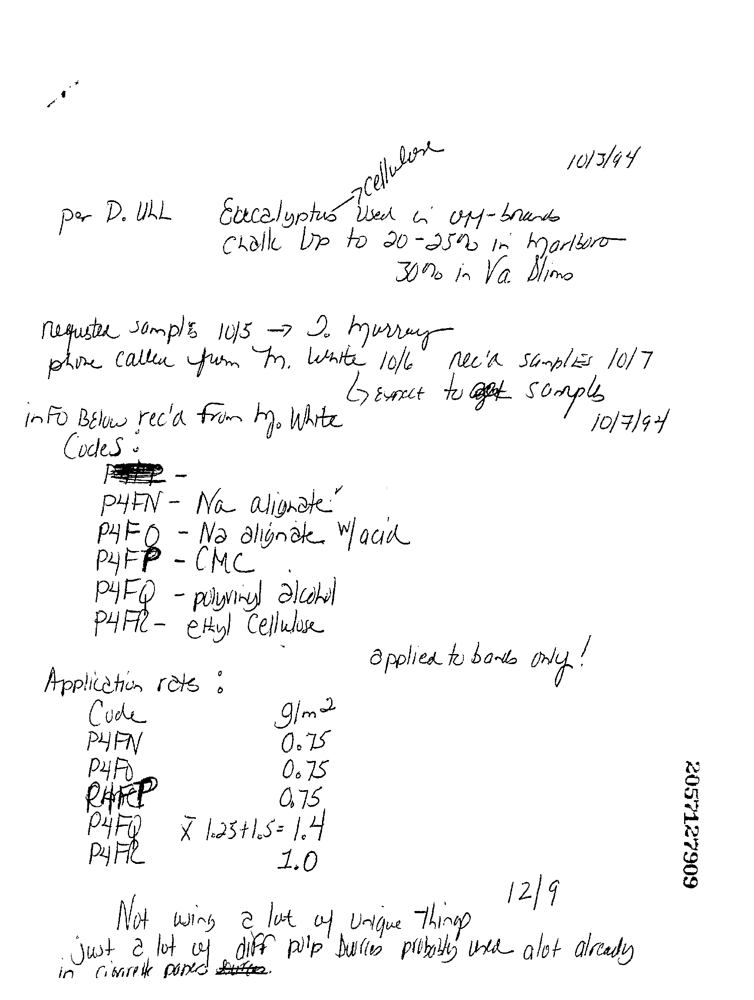 10/3/94
cellulose
per D. ULL Eucalyptus used in off-brands
Chalk Up to 20-25% in Marlboro
30% in Va. Slims
requested samples 10/5 → J. Murray
phone called from M. White 10/6 rec'd samples 10/7
↳ expect to get samples
info Below rec'd from M. White 10/7/94
Codes:
P4FN - Na alignate
P4FO - Na alignate w/acid
P4FP - CMC
P4FQ - polyvinyl alcohol
P4FR - ethyl Cellulose
applied to bands only!
Application rates:
Code g/m2
P4FN 0.75
P4FO 0.75
P4FP 0.75
P4FQ X̄ 1.25+1.5= 1.4
P4FR 1.0
12/9
Not using a lot of unique things
just a lot of diff pulp probably used alot already
in cigarette papers
2057127909